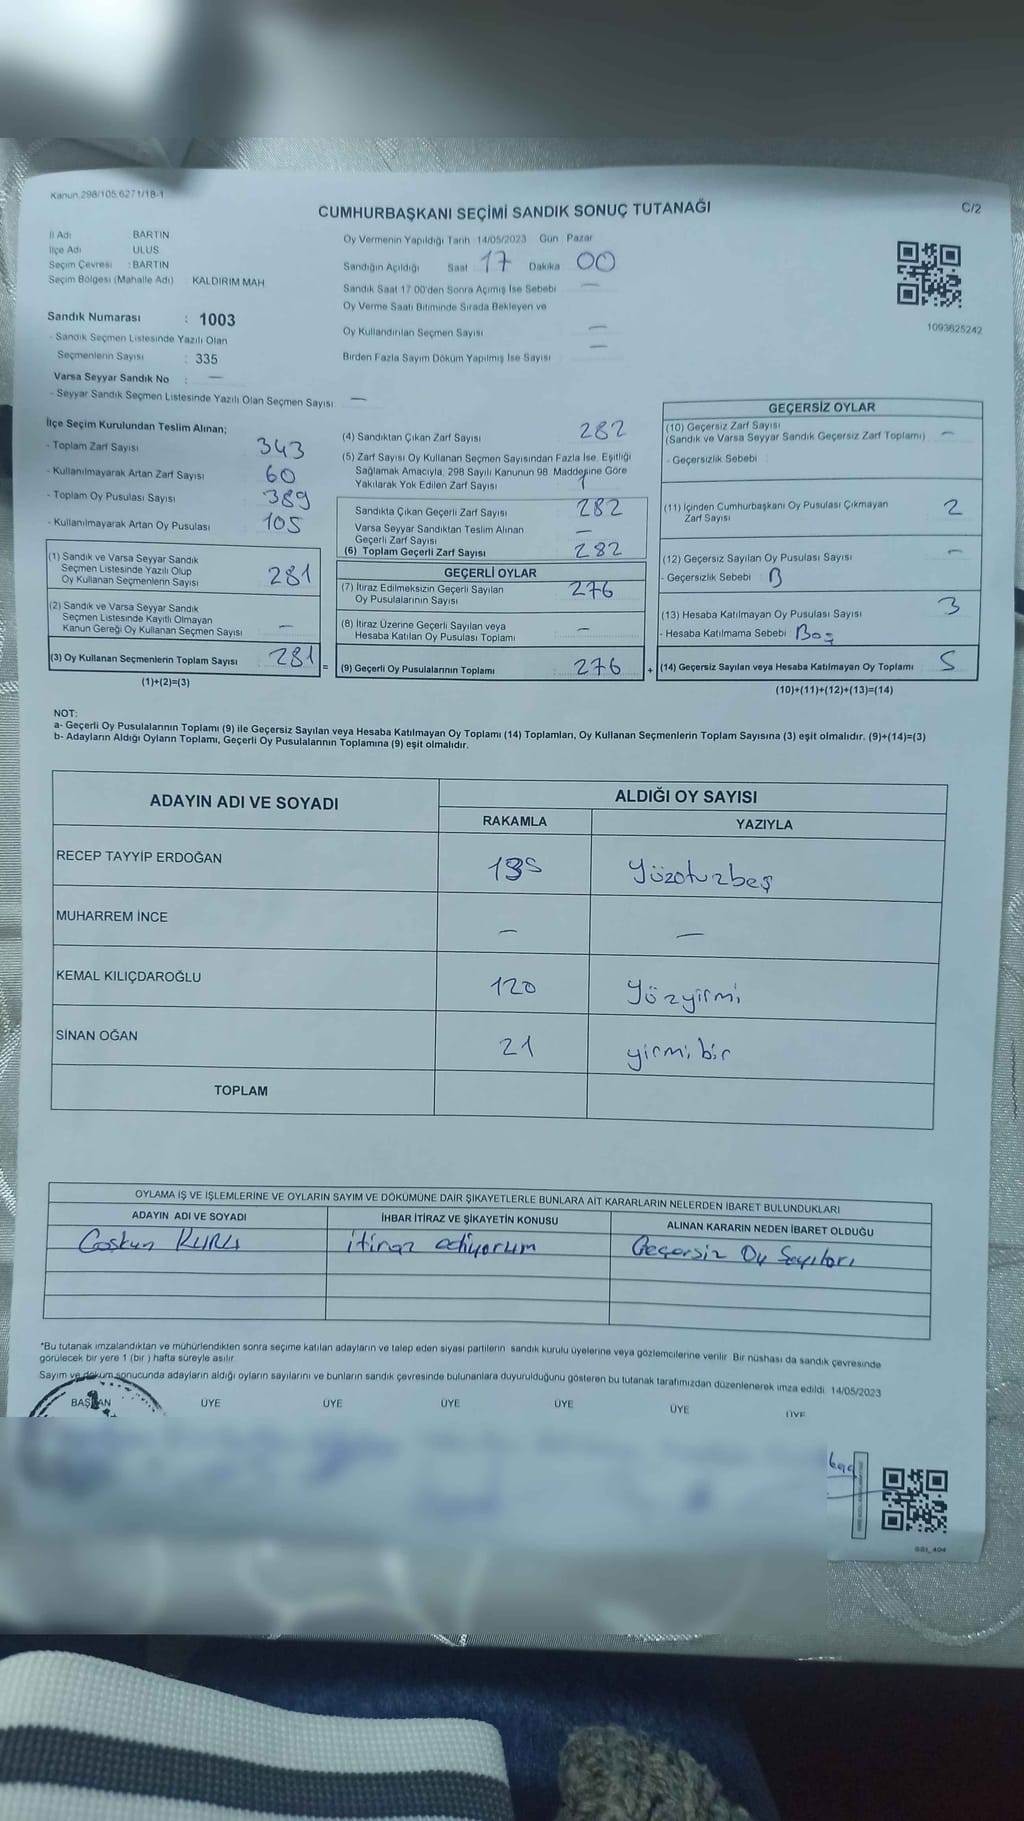 Kanun 298/105 6271/18-1
CUMHURBAŞKANI SEÇİMİ SANDIK SONUÇ TUTANAĞI
C/2
İl Adı : BARTIN
İlçe Adı : ULUS
Seçim Çevresi : BARTIN
Seçim Bölgesi (Mahalle Adı) KALDIRIM MAH
Sandık Numarası : 1003
- Sandık Seçmen Listesinde Yazılı Olan
Seçmenlerin Sayısı : 335
Varsa Seyyar Sandık No : —
- Seyyar Sandık Seçmen Listesinde Yazılı Olan Seçmen Sayısı —
Oy Vermenin Yapıldığı Tarih 14/05/2023 Gün Pazar
Sandığın Açıldığı Saat 17 Dakika 00
Sandık Saat 17 00'den Sonra Açımış İse Sebebi —
Oy Verme Saati Bitiminde Sırada Bekleyen ve
Oy Kullandırılan Seçmen Sayısı —
Birden Fazla Sayım Döküm Yapılmış İse Sayısı —
1093625242
İlçe Seçim Kurulundan Teslim Alınan;
- Toplam Zarf Sayısı 343
- Kullanılmayarak Artan Zarf Sayısı 60
- Toplam Oy Pusulası Sayısı 389
- Kullanılmayarak Artan Oy Pusulası 105
(1) Sandık ve Varsa Seyyar Sandık
Seçmen Listesinde Yazılı Olup
Oy Kullanan Seçmenlerin Sayısı 281
(2) Sandık ve Varsa Seyyar Sandık
Seçmen Listesinde Kayıtlı Olmayan
Kanun Gereği Oy Kullanan Seçmen Sayısı —
(3) Oy Kullanan Seçmenlerin Toplam Sayısı 281 =
(1)+(2)=(3)
(4) Sandıktan Çıkan Zarf Sayısı 282
(5) Zarf Sayısı Oy Kullanan Seçmen Sayısından Fazla İse, Eşitliği
Sağlamak Amacıyla, 298 Sayılı Kanunun 98. Maddesine Göre
Yakılarak Yok Edilen Zarf Sayısı 1
Sandıkta Çıkan Geçerli Zarf Sayısı 282
Varsa Seyyar Sandıktan Teslim Alınan
Geçerli Zarf Sayısı —
(6) Toplam Geçerli Zarf Sayısı 282
GEÇERLİ OYLAR
(7) İtiraz Edilmeksizin Geçerli Sayılan
Oy Pusulalarının Sayısı 276
(8) İtiraz Üzerine Geçerli Sayılan veya
Hesaba Katılan Oy Pusulası Toplamı —
(9) Geçerli Oy Pusulalarının Toplamı 276 +
GEÇERSİZ OYLAR
(10) Geçersiz Zarf Sayısı
(Sandık ve Varsa Seyyar Sandık Geçersiz Zarf Toplamı) —
- Geçersizlik Sebebi
(11) İçinden Cumhurbaşkanı Oy Pusulası Çıkmayan
Zarf Sayısı 2
(12) Geçersiz Sayılan Oy Pusulası Sayısı —
- Geçersizlik Sebebi B
(13) Hesaba Katılmayan Oy Pusulası Sayısı 3
- Hesaba Katılmama Sebebi Boş
(14) Geçersiz Sayılan veya Hesaba Katılmayan Oy Toplamı 5
(10)+(11)+(12)+(13)=(14)
NOT:
a- Geçerli Oy Pusulalarının Toplamı (9) ile Geçersiz Sayılan veya Hesaba Katılmayan Oy Toplamı (14) Toplamları, Oy Kullanan Seçmenlerin Toplam Sayısına (3) eşit olmalıdır. (9)+(14)=(3)
b- Adayların Aldığı Oyların Toplamı, Geçerli Oy Pusulalarının Toplamına (9) eşit olmalıdır.
ADAYIN ADI VE SOYADI
ALDIĞI OY SAYISI
RAKAMLA YAZIYLA
RECEP TAYYİP ERDOĞAN 135 Yüzotuzbeş
MUHARREM İNCE — —
KEMAL KILIÇDAROĞLU 120 Yüzyirmi
SİNAN OĞAN 21 yirmi bir
TOPLAM
OYLAMA İŞ VE İŞLEMLERİNE VE OYLARIN SAYIM VE DÖKÜMÜNE DAİR ŞİKAYETLERLE BUNLARA AİT KARARLARIN NELERDEN İBARET BULUNDUKLARI
ADAYIN ADI VE SOYADI İHBAR İTİRAZ VE ŞİKAYETİN KONUSU ALINAN KARARIN NEDEN İBARET OLDUĞU
Coşkun itiraz ediyorum Geçersiz Oy Sayıları
*Bu tutanak imzalandıktan ve mühürlendikten sonra seçime katılan adayların ve talep eden siyasi partilerin sandık kurulu üyelerine veya gözlemcilerine verilir Bir nüshası da sandık çevresinde
görülecek bir yere 1 (bir ) hafta süreyle asılır
Sayım ve döküm sonucunda adayların aldığı oyların sayılarını ve bunların sandık çevresinde bulunanlara duyurulduğunu gösteren bu tutanak tarafımızdan düzenlenerek imza edildi 14/05/2023
BAŞKAN ÜYE ÜYE ÜYE ÜYE ÜYE ÜYE